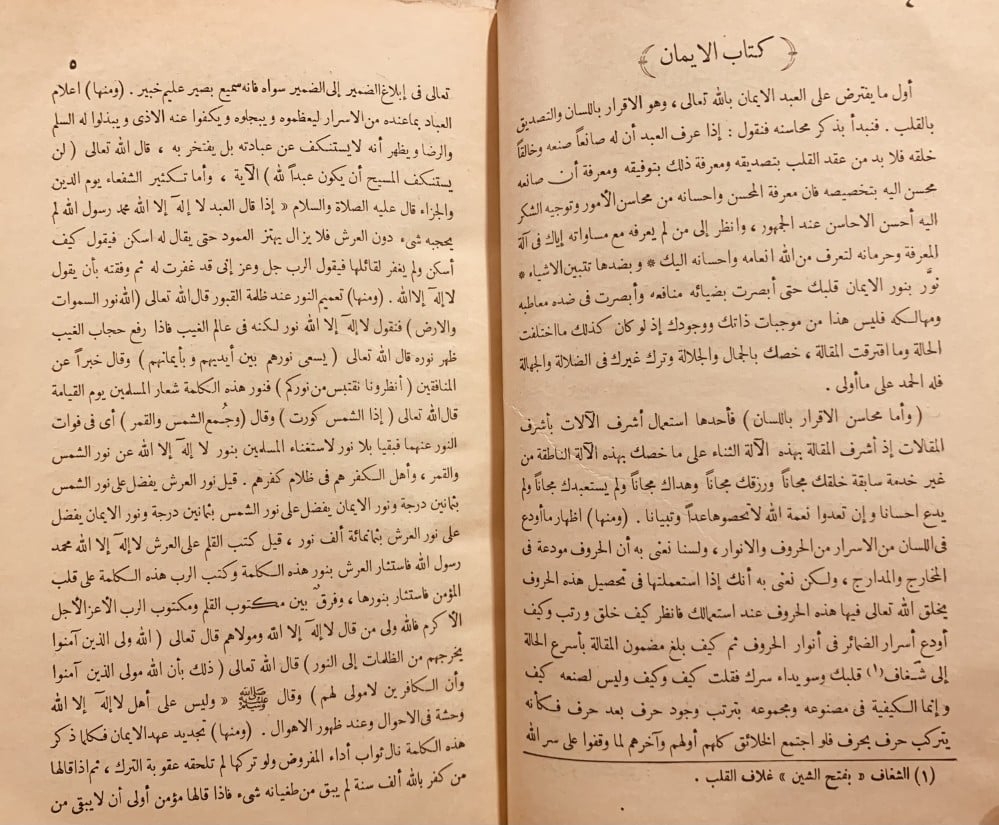 ﴿ كتاب الايمان ﴾
أول ما يفترض على العبد الايمان بالله تعالى ، وهو الاقرار باللسان والتصديق
بالقلب . فنبدأ بذكر محاسنه فنقول : إذا عرف العبد أن له صانعاً صنعه وخالقاً
خلقه فلا بد من عقد القلب بتصديقه ومعرفة ذلك بتوفيقه ومعرفة أن صانعه
محسن اليه بتخصيصه فان معرفة المحسن واحسانه من محاسن الأمور وتوجيه الشكر
اليه أحسن الاحاسن عند الجمهور ، وانظر إلى من لم يعرفه مع مساواته إياك فى آلة
المعرفة وحرمانه لتعرف من الله انعامه واحسانه اليك * وبضدها تتبين الاشياء *
نوَّر بنور الايمان قلبك حتى أبصرت بضيائه منافعه وأبصرت فى ضده معاطبه
ومهالكه فليس هذا من موجبات ذاتك ووجودك إذ لو كان كذلك ما اختلفت
الحالة وما افترقت المقالة ، خصك بالجمال والجلالة وترك غيرك فى الضلالة والجهالة
فله الحمد على ما أولى .
( وأما محاسن الاقرار باللسان ) فأحدها استعمال أشرف الآلات بأشرف
المقالات إذ أشرف المقالة بهذه الآلة الثناء على ما خصك بهذه الآلة الناطقة من
غير خدمة سابقة خلقك مجاناً ورزقك مجاناً وهداك مجاناً ولم يستعبدك مجاناً ولم
يدع احسانا وإن تعدوا نعمة الله لاتحصوها عداً وتبيانا . (ومنها) اظهار ما أودع
فى اللسان من الاسرار من الحروف والانوار ، ولسنا نعنى به أن الحروف مودعة فى
المخارج والمدارج ، ولكن نعنى به أنك إذا استعملتها فى تحصيل هذه الحروف
يخلق الله تعالى فيها هذه الحروف عند استعمالك فانظر كيف خلق ورتب وكيف
أودع أسرار الضمائر فى أنوار الحروف ثم كيف بلغ مضمون المقالة بأسرع الحالة
إلى شَغاف(١) قلبك وسويداء سرك فقلت كيف وكيف وليس لصنعه كيف
وإنما الكيفية فى مصنوعه ومجموعه بترتب وجود حرف بعد حرف فكأنه
يتركب حرف بحرف فلو اجتمع الخلائق كلهم أولهم وآخرهم لما وقفوا على سر الله
(١) الشغاف « بفتح الشين » غلاف القلب .
٥
تعالى فى إبلاغ الضمير إلى الضمير سواه فانه سميع بصير عليم خبير . (ومنها) اعلام
العباد بما عنده من الاسرار ليعظموه ويبجلوه ويكفوا عنه الاذى ويبذلوا له السلم
والرضا ويظهر أنه لايستنكف عن عبادته بل يفتخر به ، قال الله تعالى ( لن
يستنكف المسيح أن يكون عبداً لله ) الآية ، وأما تكثير الشفعاء يوم الدين
والجزاء قال عليه الصلاة والسلام « إذا قال العبد لا إله إلا الله محمد رسول الله لم
يحجبه شىء دون العرش فلا يزال يهتز العمود حتى يقال له اسكن فيقول كيف
أسكن ولم يغفر لقائلها فيقول الرب جل وعز إنى قد غفرت له ثم وفقته بأن يقول
لا إله إلا الله . (ومنها) تعميم النور عند ظلمة القبور قال الله تعالى (الله نور السموات
والارض ) فنقول لا إله إلا الله نور لكنه فى عالم الغيب فاذا رفع حجاب الغيب
ظهر نوره قال الله تعالى ( يسعى نورهم بين أيديهم وبأيمانهم ) وقال خبراً عن
المنافقين ( أنظرونا نقتبس من نوركم ) فنور هذه الكلمة شعار المسلمين يوم القيامة
قال الله تعالى ( إذا الشمس كورت ) وقال (وجُمع الشمس والقمر ) أى فى فوات
النور عنهما فبقيا بلا نور لاستغناء المسلمين بنور لا إله إلا الله عن نور الشمس
والقمر ، وأهل الكفر هم فى ظلام كفرهم . قيل نور العرش يفضل على نور الشمس
بثمانين درجة ونور الايمان يفضل على نور الشمس بثمانين درجة ونور الايمان يفضل
على نور العرش بثمانمائة ألف نور ، قيل كتب القلم على العرش لا إله إلا الله محمد
رسول الله فاستنار العرش بنور هذه الكلمة وكتب الرب هذه الكلمة على قلب
المؤمن فاستنار بنورها ، وفرقٌ بين مكتوب القلم ومكتوب الرب الأعز الأجل
الأكرم فالله ولى من قال لا إله إلا الله ومولاهم قال تعالى ( الله ولى الذين آمنوا
يخرجهم من الظلمات إلى النور ) قال الله تعالى ( ذلك بأن الله مولى الذين آمنوا
وأن الكافرين لامولى لهم ) وقال ﷺ « وليس على أهل لا إله إلا الله
وحشة فى الاحوال وعند ظهور الاهوال . (ومنها) تجديد عهد الايمان فكلما ذكر
هذه الكلمة نال ثواب أداء المفروض ولو تركها لم تلحقه عقوبة الترك ، ثم اذا قالها
من كفر بالله ألف سنة لم يبق من طغيانه شىء فاذا قالها مؤمن أولى أن لا يبقى من